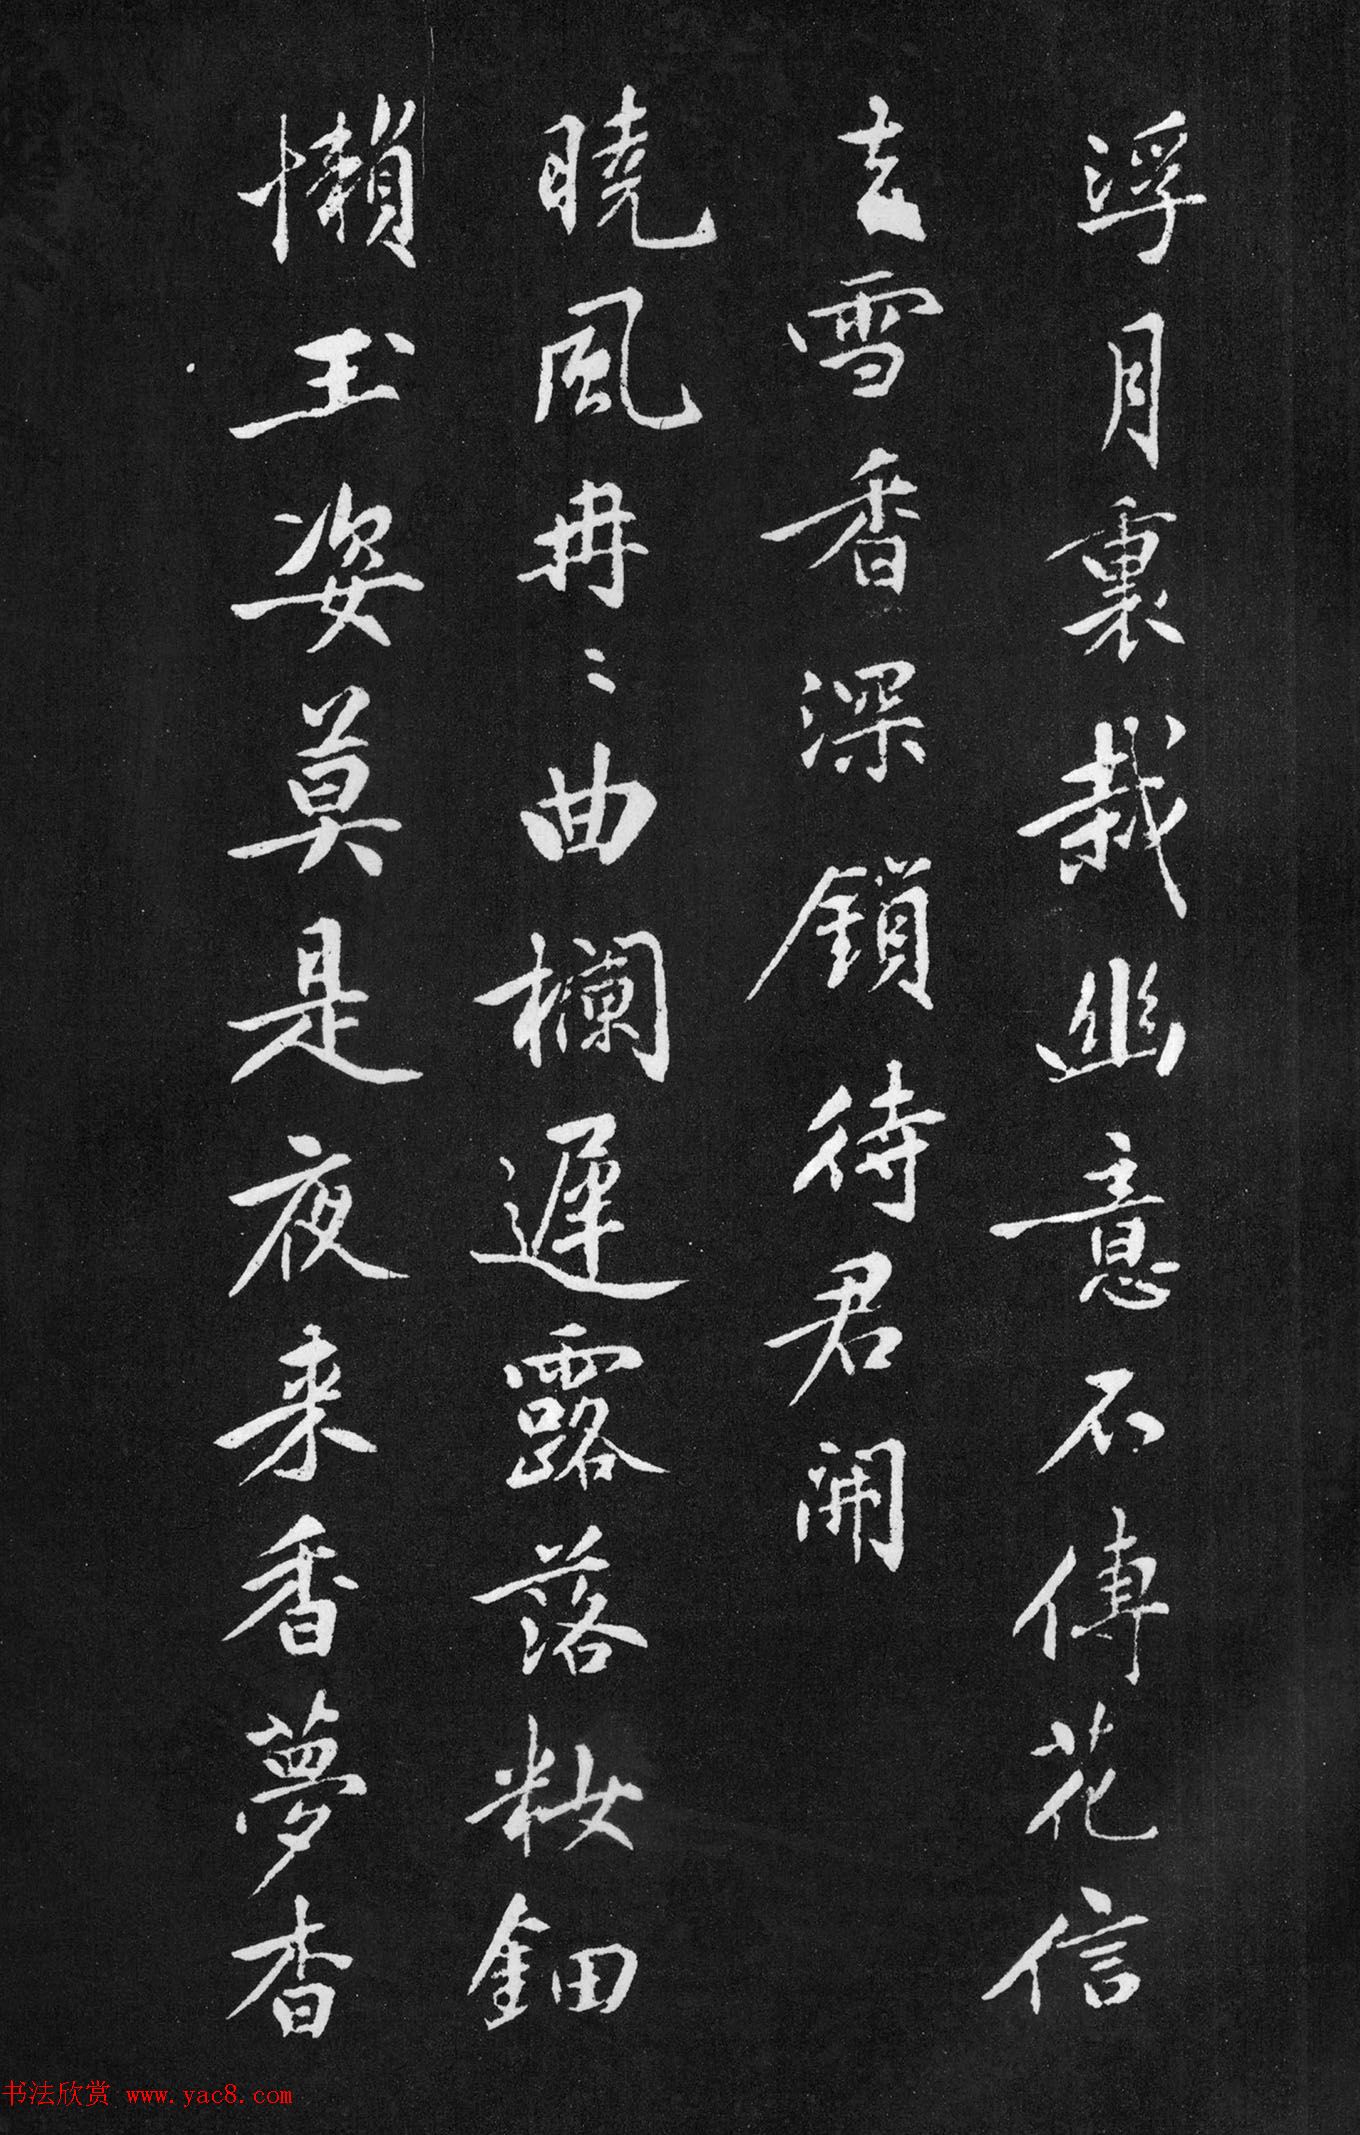 浮月裏栽幽意不傳花信
去雪香深鎖待君開
曉風冉〻曲欄遲露落粧鈿
懶玉姿莫是夜来香夢杳
书法欣赏 www.yac8.com